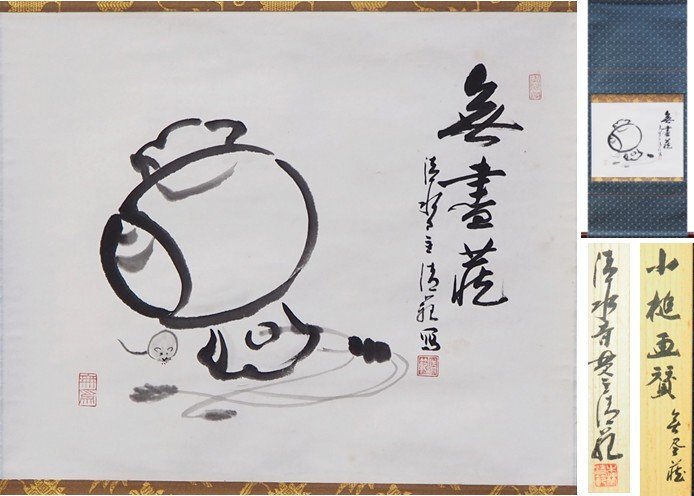 無盡蔵
清水寺主清範写
清水寺貫主清範
小槌画賛
無尽蔵